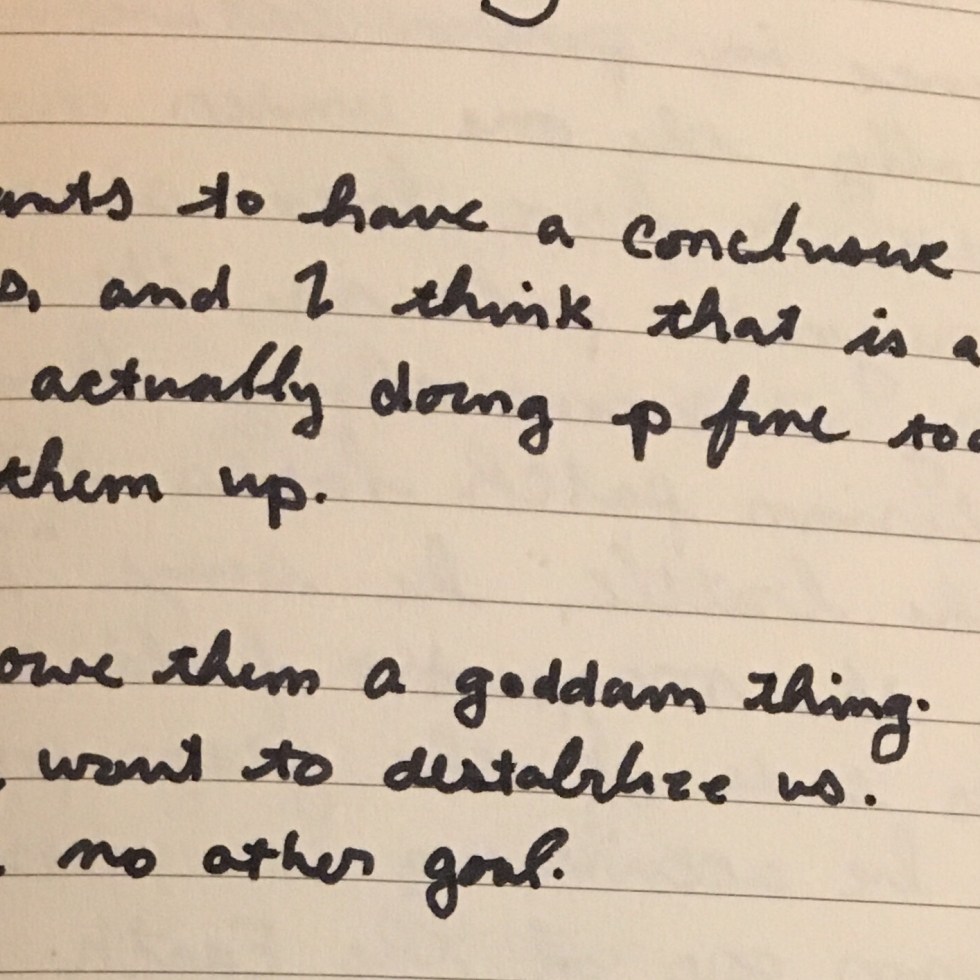 ants to have a conclusive
s, and I think that is a
actually doing p fine too
them up.
owe them a goddam thing.
want to destabilize us.
no other goal.